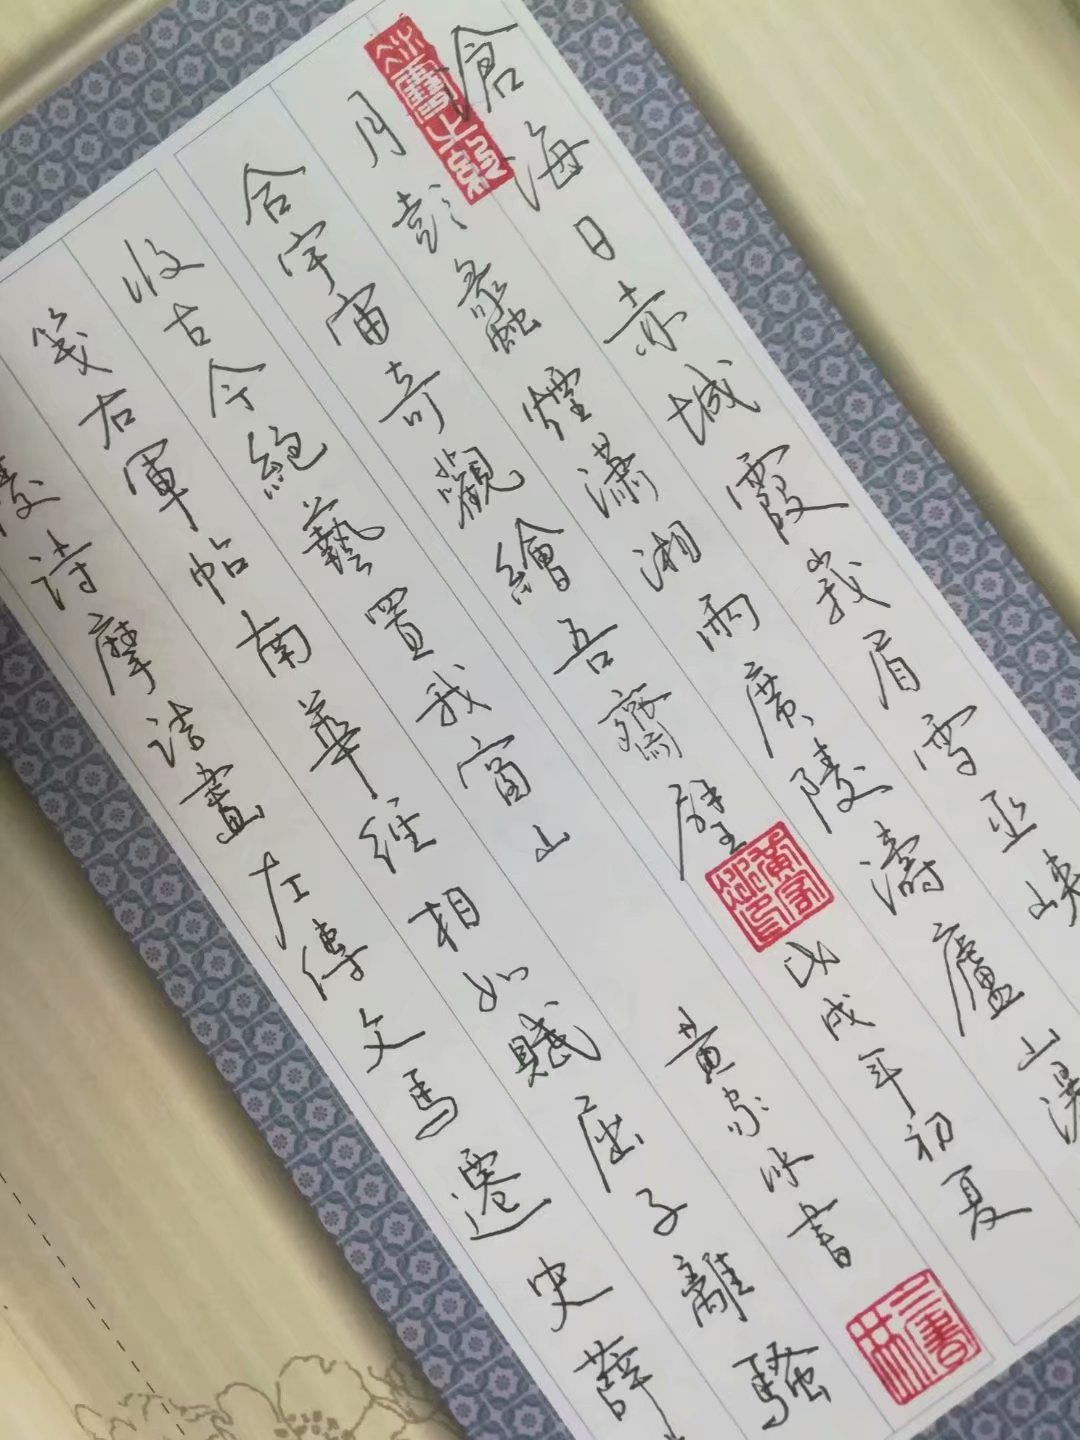 滄海日赤城霞峩眉雪巫峽
月彭蠡煙瀟湘雨廣陵濤廬山瀑
合宇宙奇觀繪吾齋壁 戊戌年初夏
收古今絕藝置我窗山 黄家書
箋右軍帖南華經相如賦屈子離騷
陵诗摩诘畫左傳文馬遷史薛